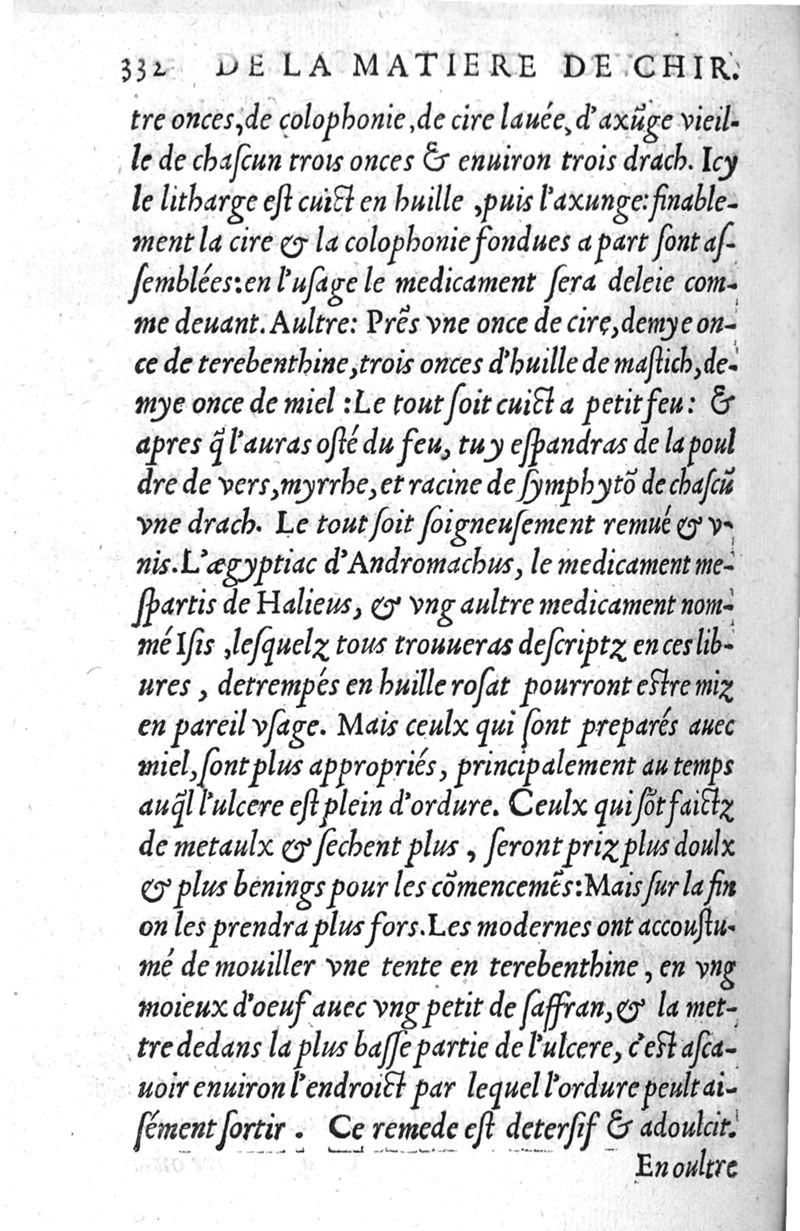 332 DE LA MATIERE DE CHIR.
tre onces, de colophonie, de cire lauée, d'axũge vieil-
le de chaſcun trois onces & enuiron trois drach. Icy
le litharge eſt cuict en huille , puis l'axunge: finable-
ment la cire & la colophonie fondues a part ſont aſ-
ſemblées: en l'uſage le medicament ſera deleie com-
me deuant. Aultre: Prẽs vne once de cire, demye on-
ce de terebenthine, trois onces d'huille de maſtich, de-
mye once de miel : Le tout ſoit cuict a petit feu: &
apres q̃ l'auras oſté du feu, tu y eſpandras de la poul
dre de vers, myrrhe, et racine de ſymphytõ de chaſcũ
vne drach. Le tout ſoit ſoigneuſement remué & v-
nis. L'ægyptiac d'Andromachus, le medicament me-
ſpartis de Halieus, & vng aultre medicament nom-
mé Iſis , leſquelz tous trouueras deſcriptz en ces lib-
ures , detrempés en huille roſat pourront eſtre miz
en pareil vſage. Mais ceulx qui ſont preparés auec
miel, ſont plus appropriés, principalement au temps
auq̃l l'ulcere eſt plein d'ordure. Ceulx qui ſõt faictz
de metaulx & ſechent plus , ſeront priz plus doulx
& plus benings pour les cõmencemẽs: Mais ſur la fin
on les prendra plus fors. Les modernes ont accouſtu-
mé de mouiller vne tente en terebenthine, en vng
moieux d'oeuf auec vng petit de ſaffran, & la met-
tre dedans la plus baſſe partie de l'ulcere, c'eſt aſca-
uoir enuiron l'endroict par lequel l'ordure peult ai-
ſément ſortir . Ce remede eſt deterſif & adoulcit.
En oultre